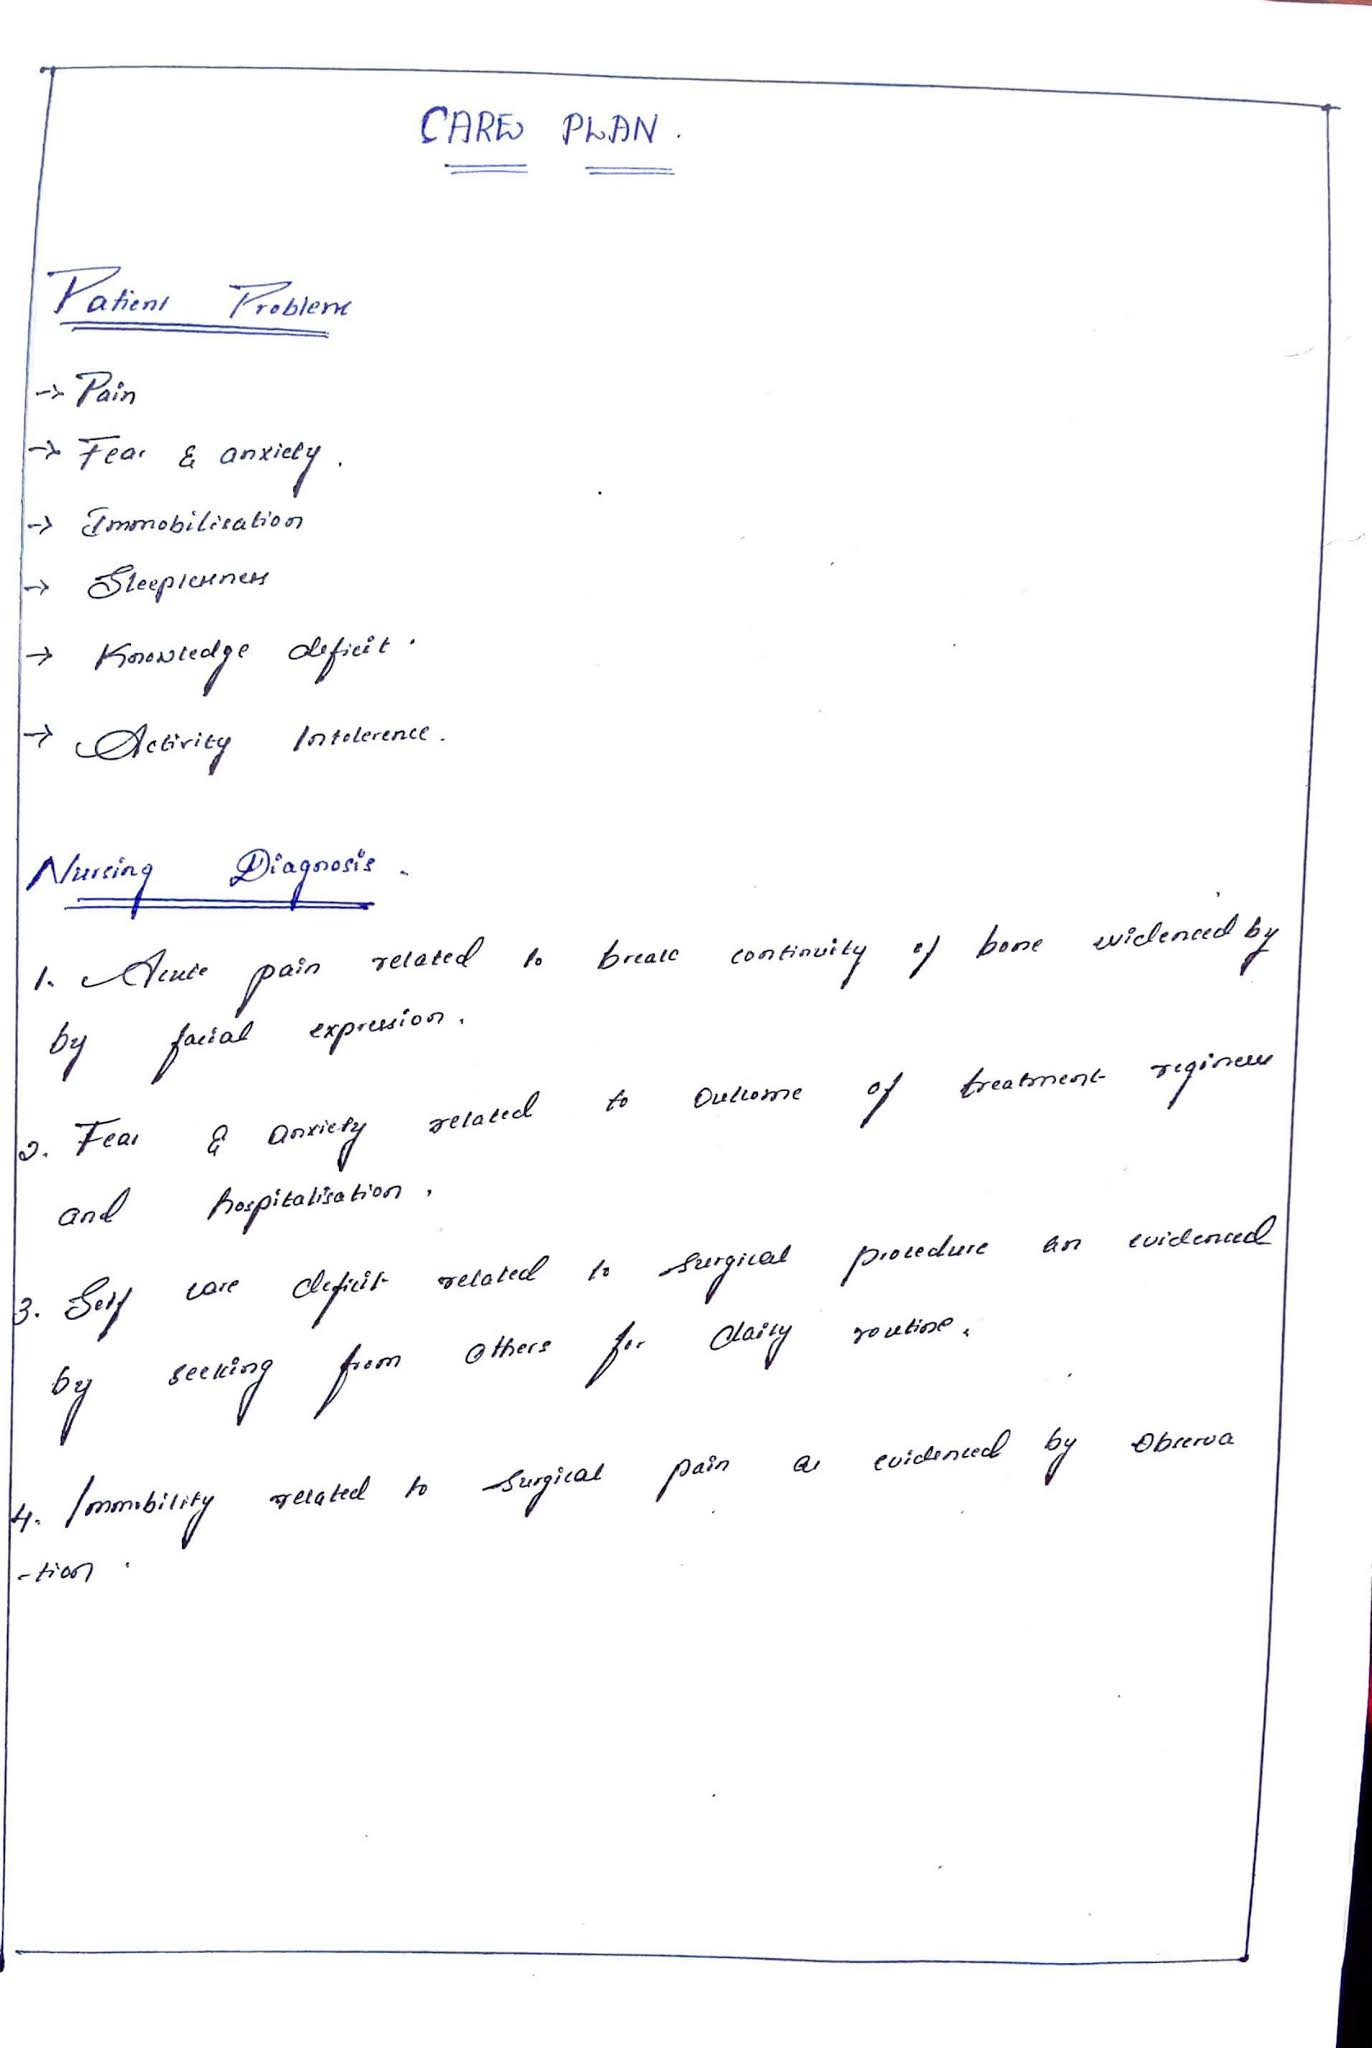 CARE PLAN.
Patient Problem
→ Pain
→ Fear & anxiety.
→ Immobilisation
→ Sleeplessness
→ Knowledge deficit.
→ Activity Intolerence.
Nursing Diagnosis.
1. Acute pain related to break continuity of bone evidenced by
by facial expression.
2. Fear & anxiety related to outcome of treatment
and hospitalisation.
3. Self care deficit related to surgical procedure an evidenced
by seeking from others for daily routine.
4. Immobility related to surgical pain as evidenced by Observa
-tion.